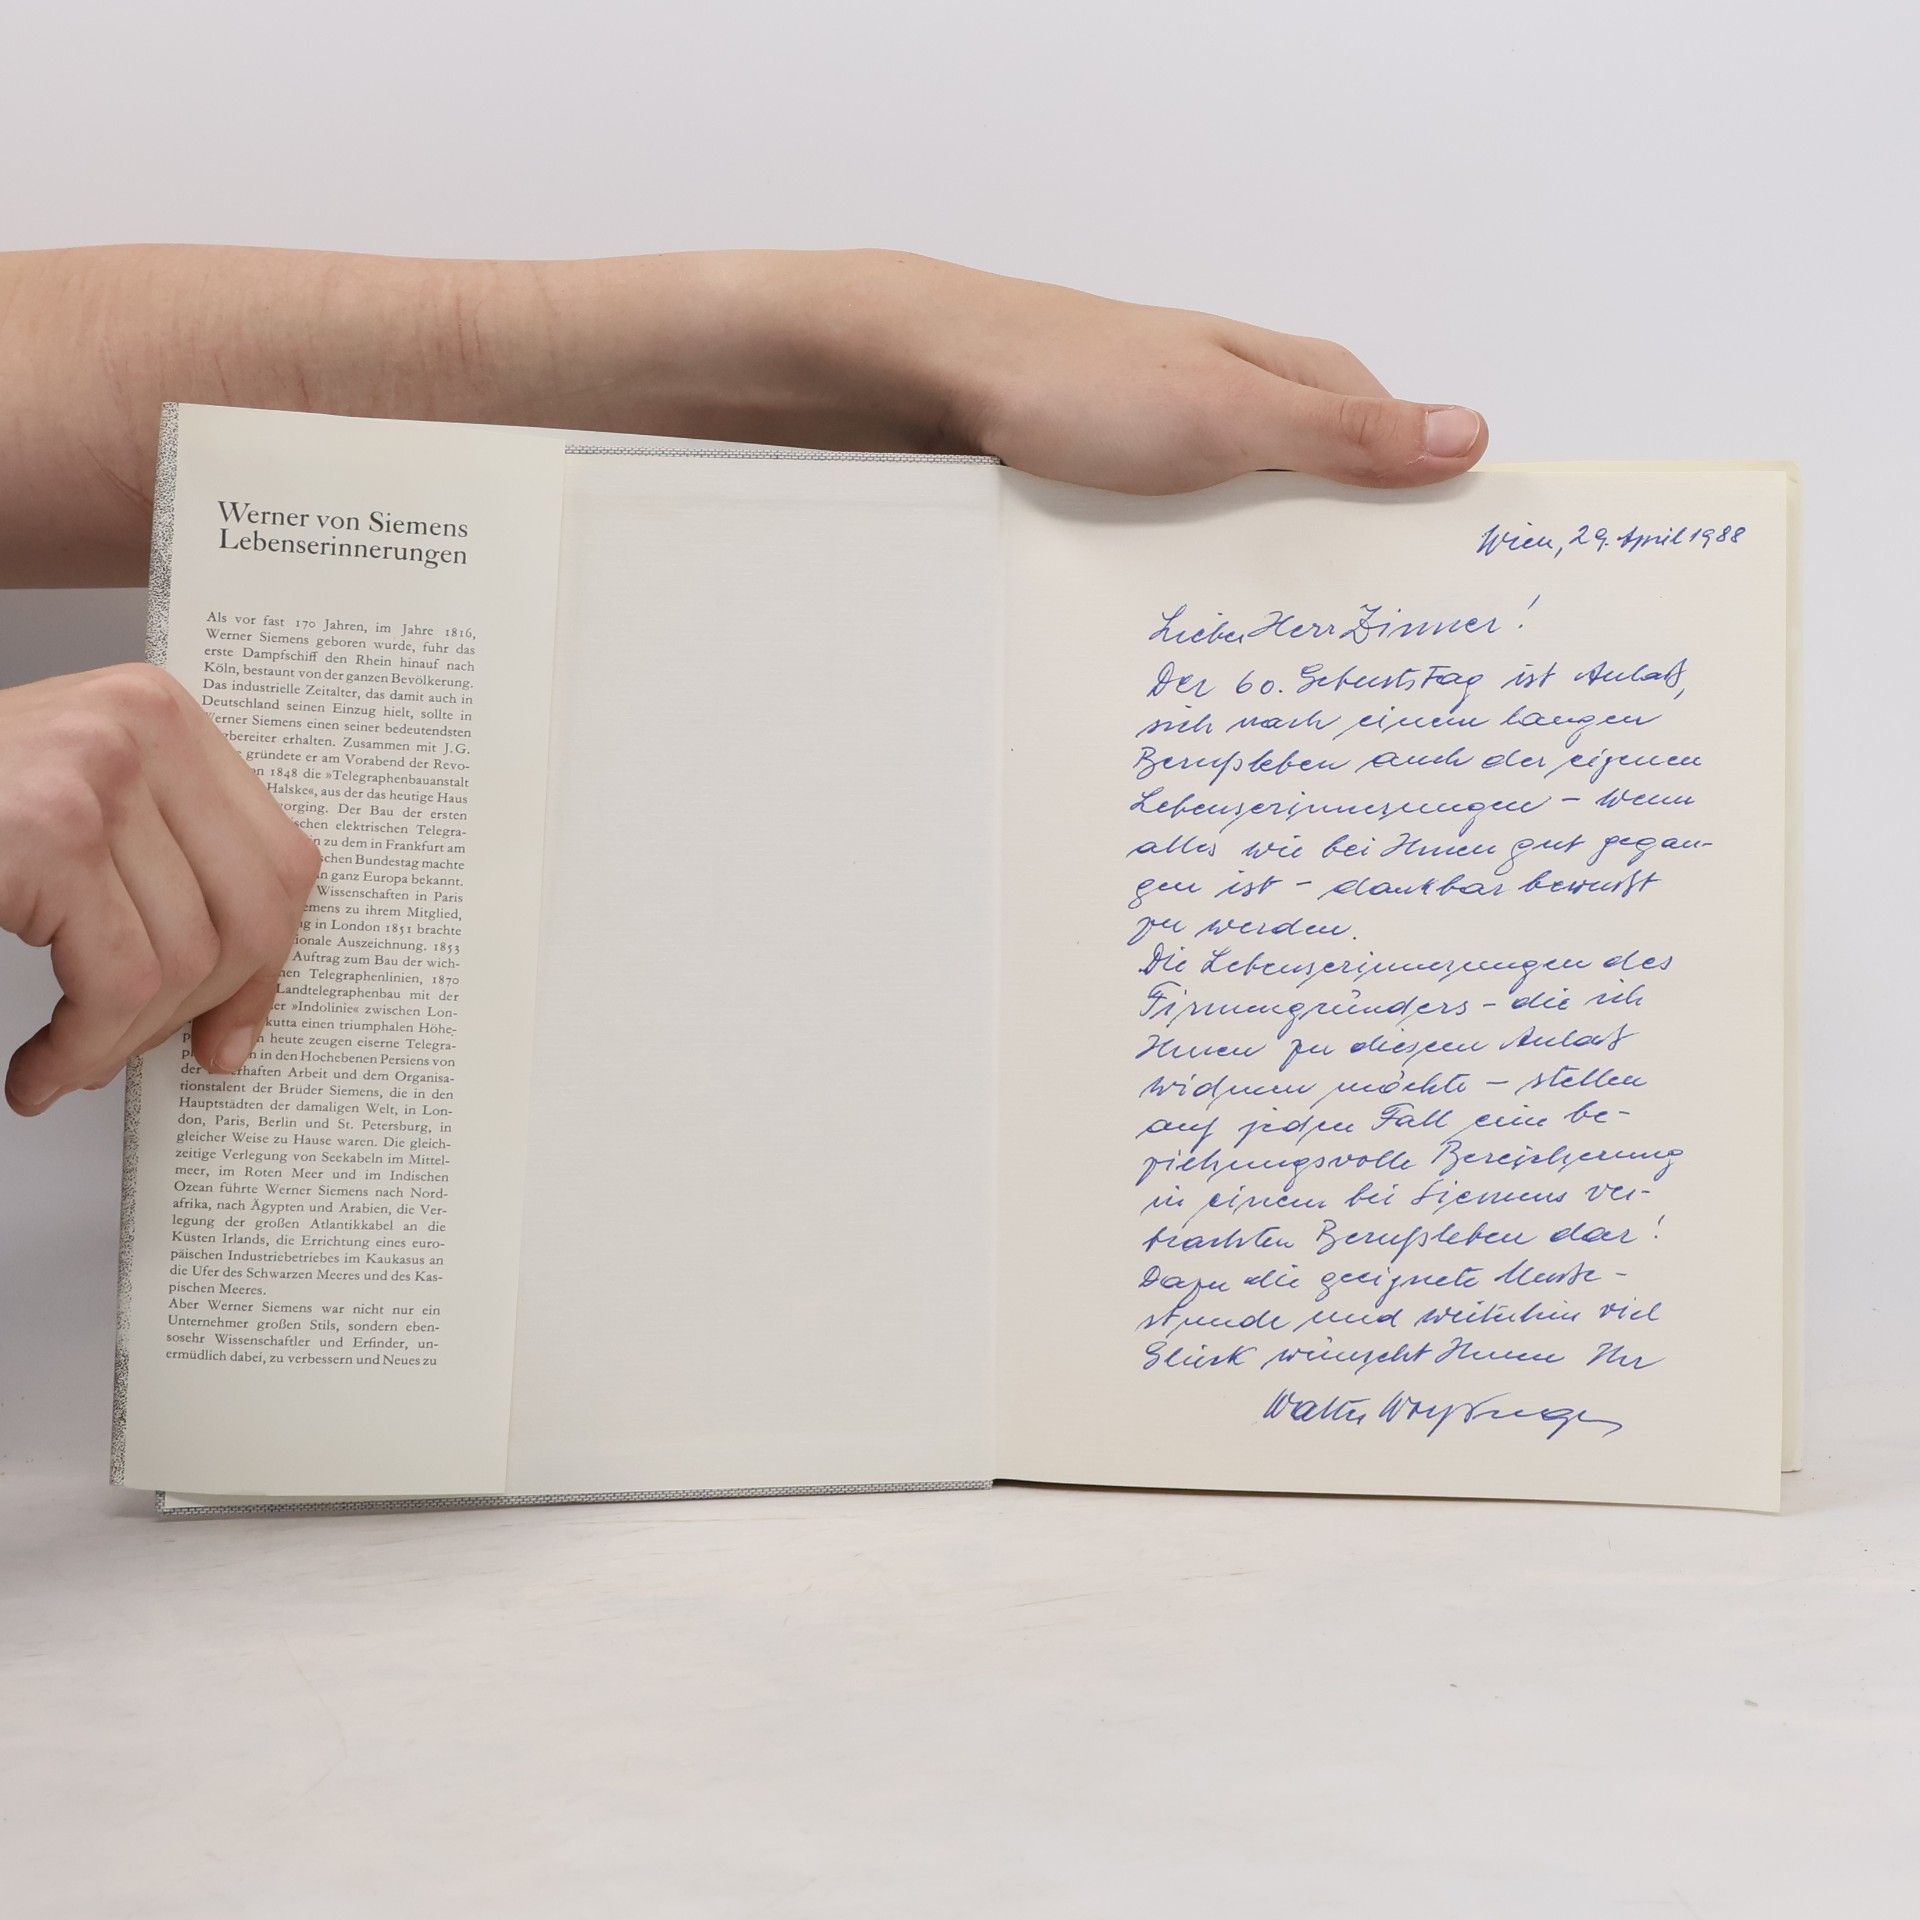 Werner von Siemens
Lebenserinnerungen
Als vor fast 170 Jahren, im Jahre 1816,
Werner Siemens geboren wurde, fuhr das
erste Dampfschiff den Rhein hinauf nach
Köln, bestaunt von der ganzen Bevölkerung.
Das industrielle Zeitalter, das damit auch in
Deutschland seinen Einzug hielt, sollte in
Werner Siemens einen seiner bedeutendsten
gbereiter erhalten. Zusammen mit J.G.
gründete er am Vorabend der Revo-
on 1848 die »Telegraphenbauanstalt
Halske«, aus der das heutige Haus
vorging. Der Bau der ersten
schen elektrischen Telegra-
in zu dem in Frankfurt am
schen Bundestag machte
in ganz Europa bekannt.
Wissenschaften in Paris
emens zu ihrem Mitglied,
ng in London 1851 brachte
ionale Auszeichnung. 1853
Auftrag zum Bau der wich-
hen Telegraphenlinien, 1870
Landtelegraphenbau mit der
er »Indolinie« zwischen Lon-
kutta einen triumphalen Höhe-
heute zeugen eiserne Telegra-
in den Hochebenen Persiens von
der erhaften Arbeit und dem Organisa-
tionstalent der Brüder Siemens, die in den
Hauptstädten der damaligen Welt, in Lon-
don, Paris, Berlin und St. Petersburg, in
gleicher Weise zu Hause waren. Die gleich-
zeitige Verlegung von Seekabeln im Mittel-
meer, im Roten Meer und im Indischen
Ozean führte Werner Siemens nach Nord-
afrika, nach Ägypten und Arabien, die Ver-
legung der großen Atlantikkabel an die
Küsten Irlands, die Errichtung eines euro-
päischen Industriebetriebes im Kaukasus an
die Ufer des Schwarzen Meeres und des Kas-
pischen Meeres.
Aber Werner Siemens war nicht nur ein
Unternehmer großen Stils, sondern eben-
sosehr Wissenschaftler und Erfinder, un-
ermüdlich dabei, zu verbessern und Neues zu
Wien, 29. April 1988
Lieber Herr Zinner!
Der 60. Geburtstag ist Anlaß,
sich nach einem langen
Berufsleben auch der eigenen
Lebenserinnerungen – wenn
alles wie bei Ihnen gut gegan-
gen ist – dankbar bewußt
zu werden.
Die Lebenserinnerungen des
Firmengründers – die ich
Ihnen zu diesem Anlaß
widmen möchte – stellen
auf jeden Fall eine be-
ziehungsvolle Bereicherung
in einem bei Siemens ver-
brachten Berufsleben dar!
Dazu die geeignete Muße-
stunde und weiterhin viel
Glück wünscht Ihnen Ihr
Walter